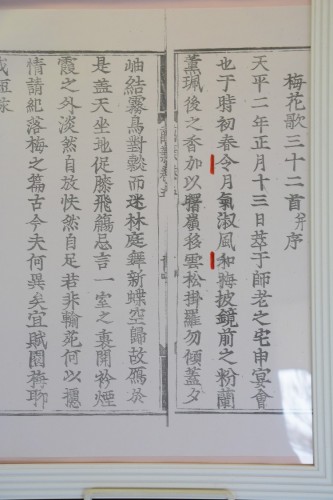 梅花歌三十二首并序
天平二年正月十三日萃于師老之宅申宴會
也于時初春令月氣淑風和梅披鏡前之粉蘭
薫珮後之香加以曙嶺移雲松掛羅勿傾盖夕
岫結霧鳥對縠而迷林庭舞新蝶空歸故鴈於
是盖天坐地促膝飛觴忘言一室之裏開衿煙
霞之外淡然自放快然自足若非翰苑何以攄
情請紀落梅之篇古今夫何異矣宜賦園梅聊